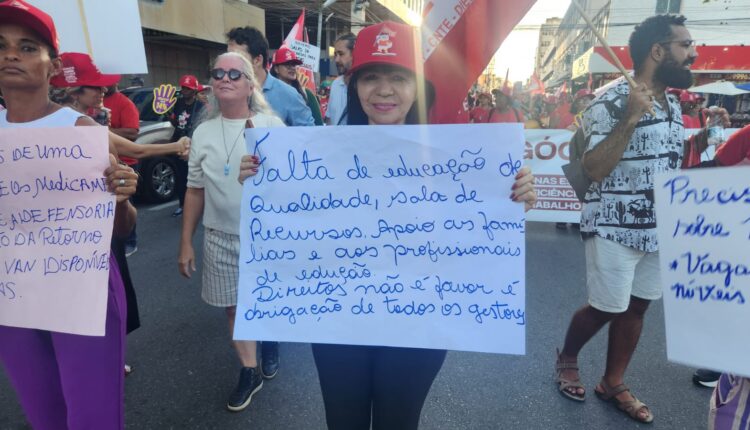 S DE UMA
MEDICAME
A DEFENSORIA
DA RETORNO
VAN DISPONÍV
AS.
Falta de educação de
Qualidade, sala de
Recursos. Apoio as famí
lias e aos profissionais
de edução
Direitos não é favor é
obrigação de todos os gestory
Precis
sobre
*Vaga
níveis
NAS E
CIÊNCI
TRABALHO